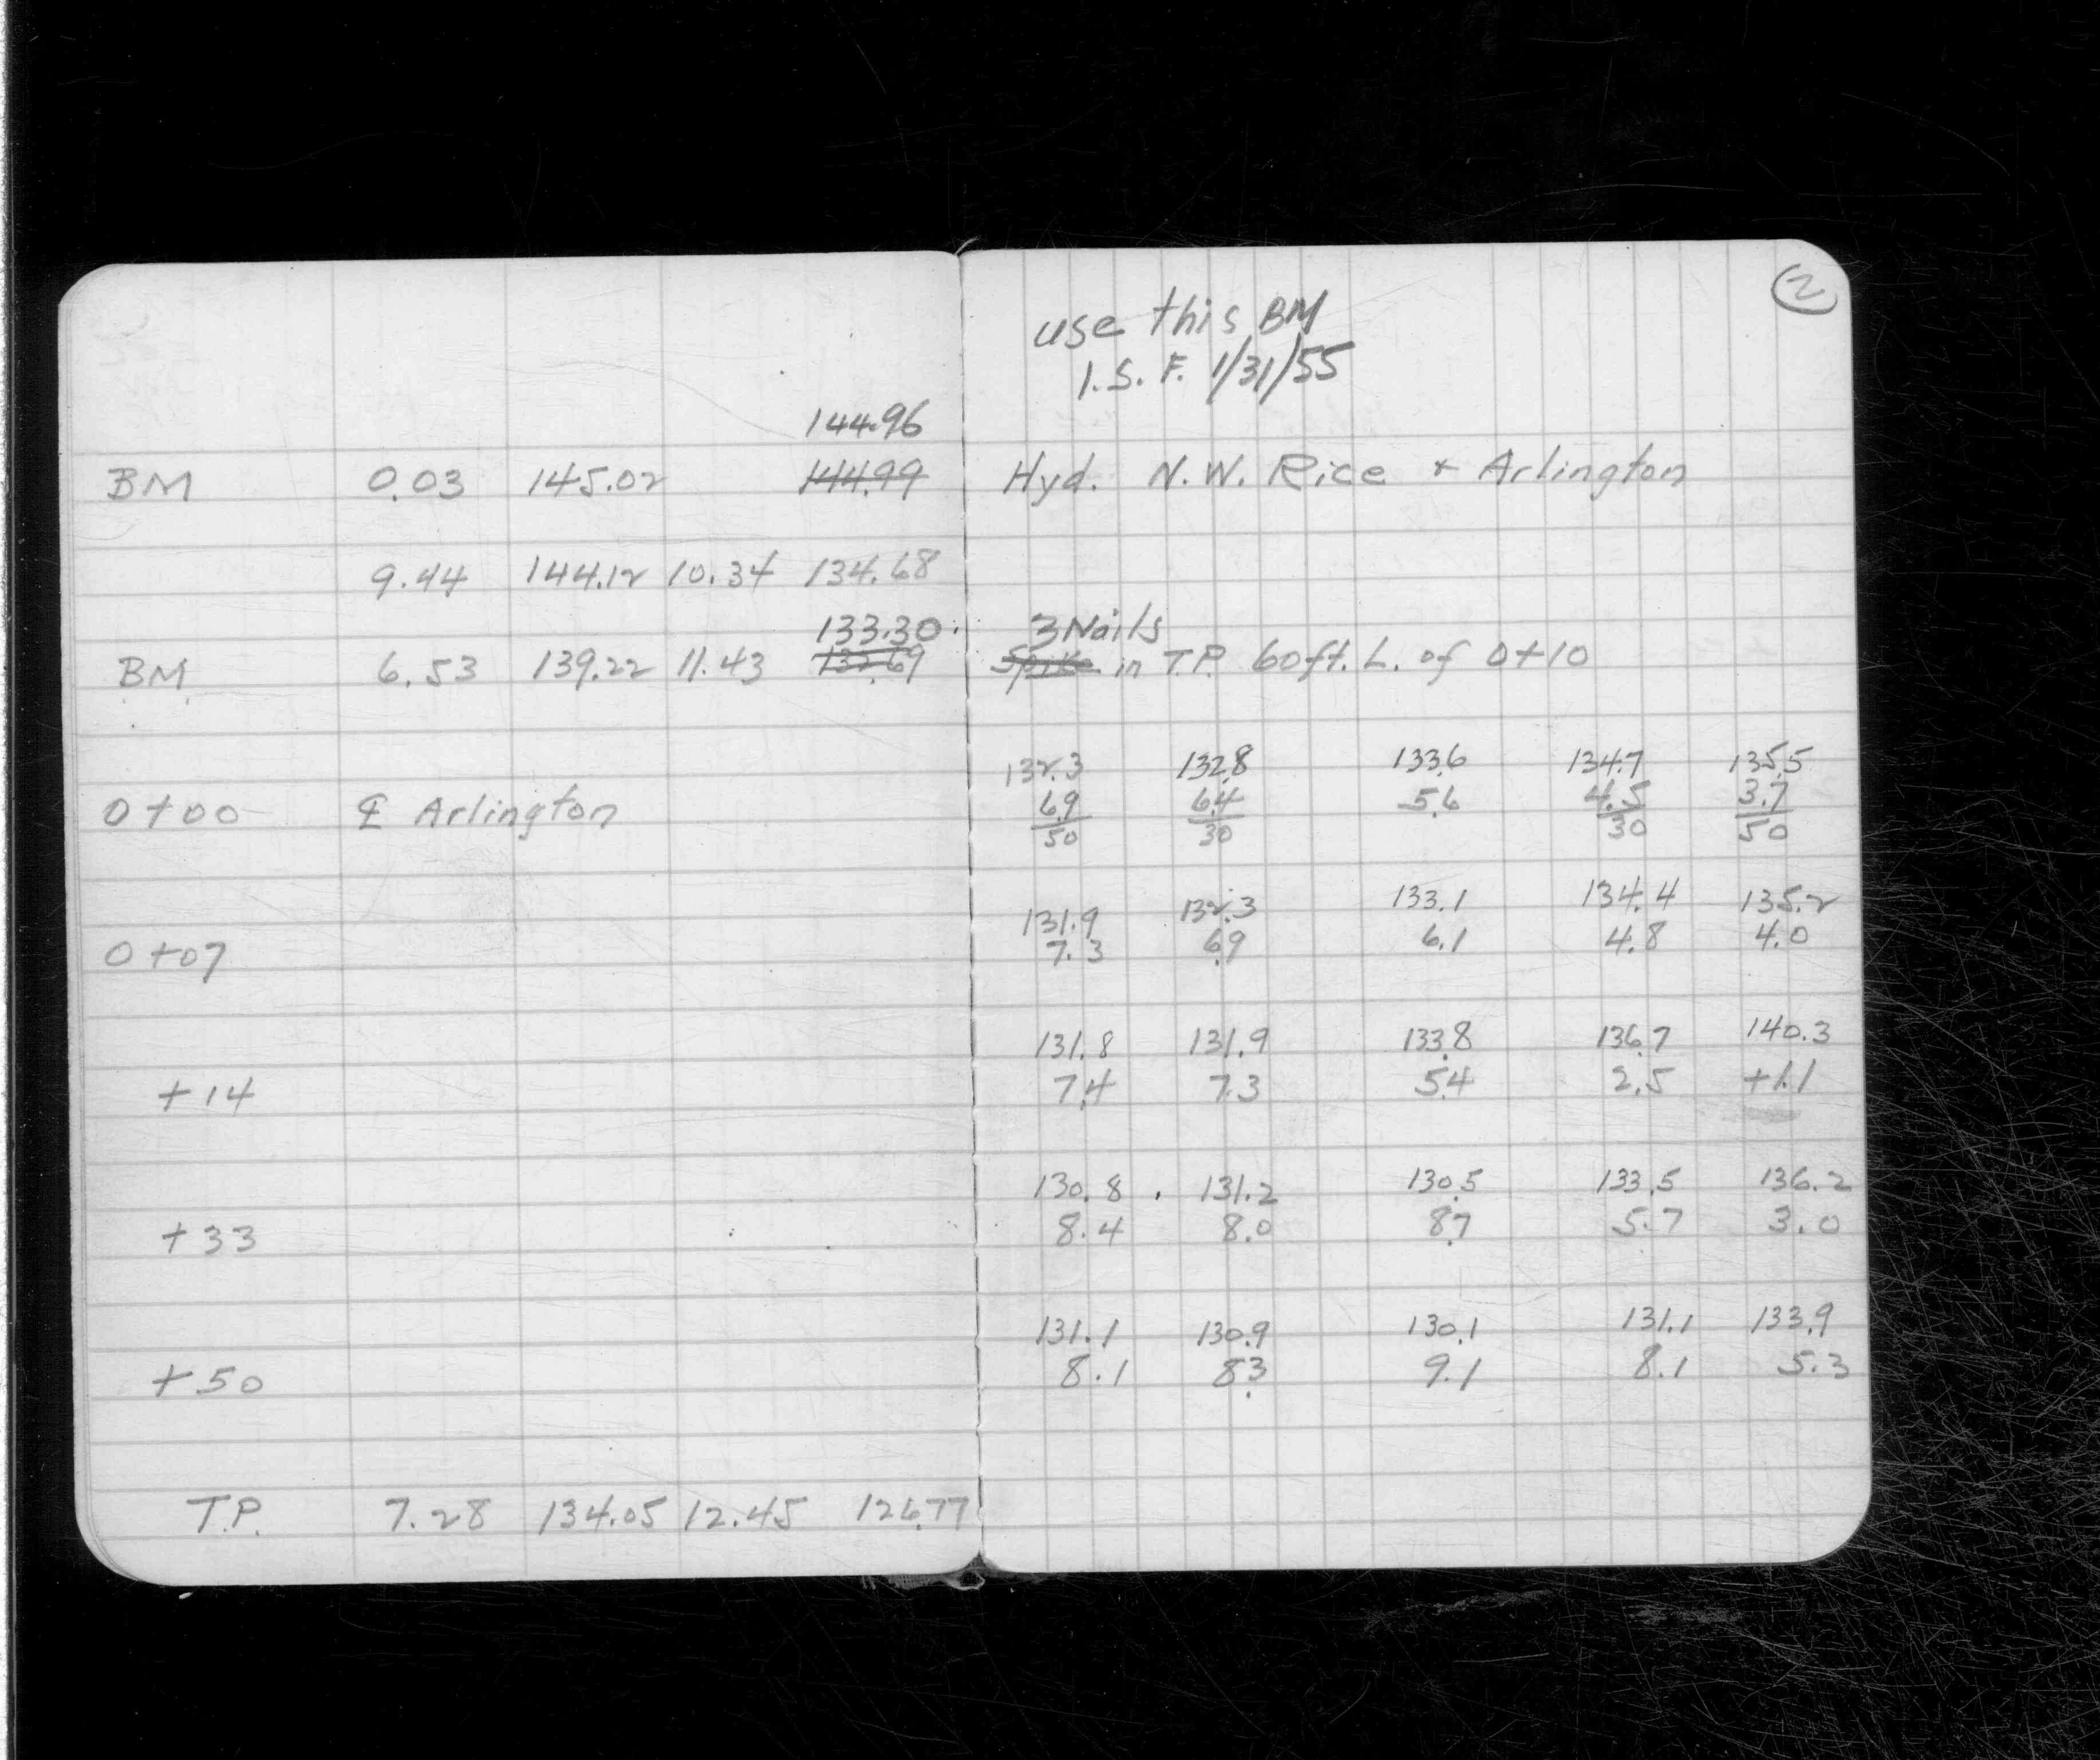 2
use this BM
I.S.F. 1/31/55
144.96
BM 0.03 145.02 144.99 Hyd. N.W. Rice & Arlington
9.44 144.12 10.34 134.68
133.30 3 Nails
BM 6.53 139.22 11.43 132.69 Spike in T.P. 60ft. L. of 0+10
132.3 132.8 133.6 134.7 135.5
0+00 ℄ Arlington 6.9 6.4 5.6 4.5 3.7
50 30 30 50
131.9 132.3 133.1 134.4 135.2
0+07 7.3 6.9 6.1 4.8 4.0
131.8 131.9 133.8 136.7 140.3
+14 7.4 7.3 5.4 2.5 +1.1
130.8 131.2 130.5 133.5 136.2
+33 8.4 8.0 8.7 5.7 3.0
131.1 130.9 130.1 131.1 133.9
+50 8.1 8.3 9.1 8.1 5.3
T.P. 7.28 134.05 12.45 126.77